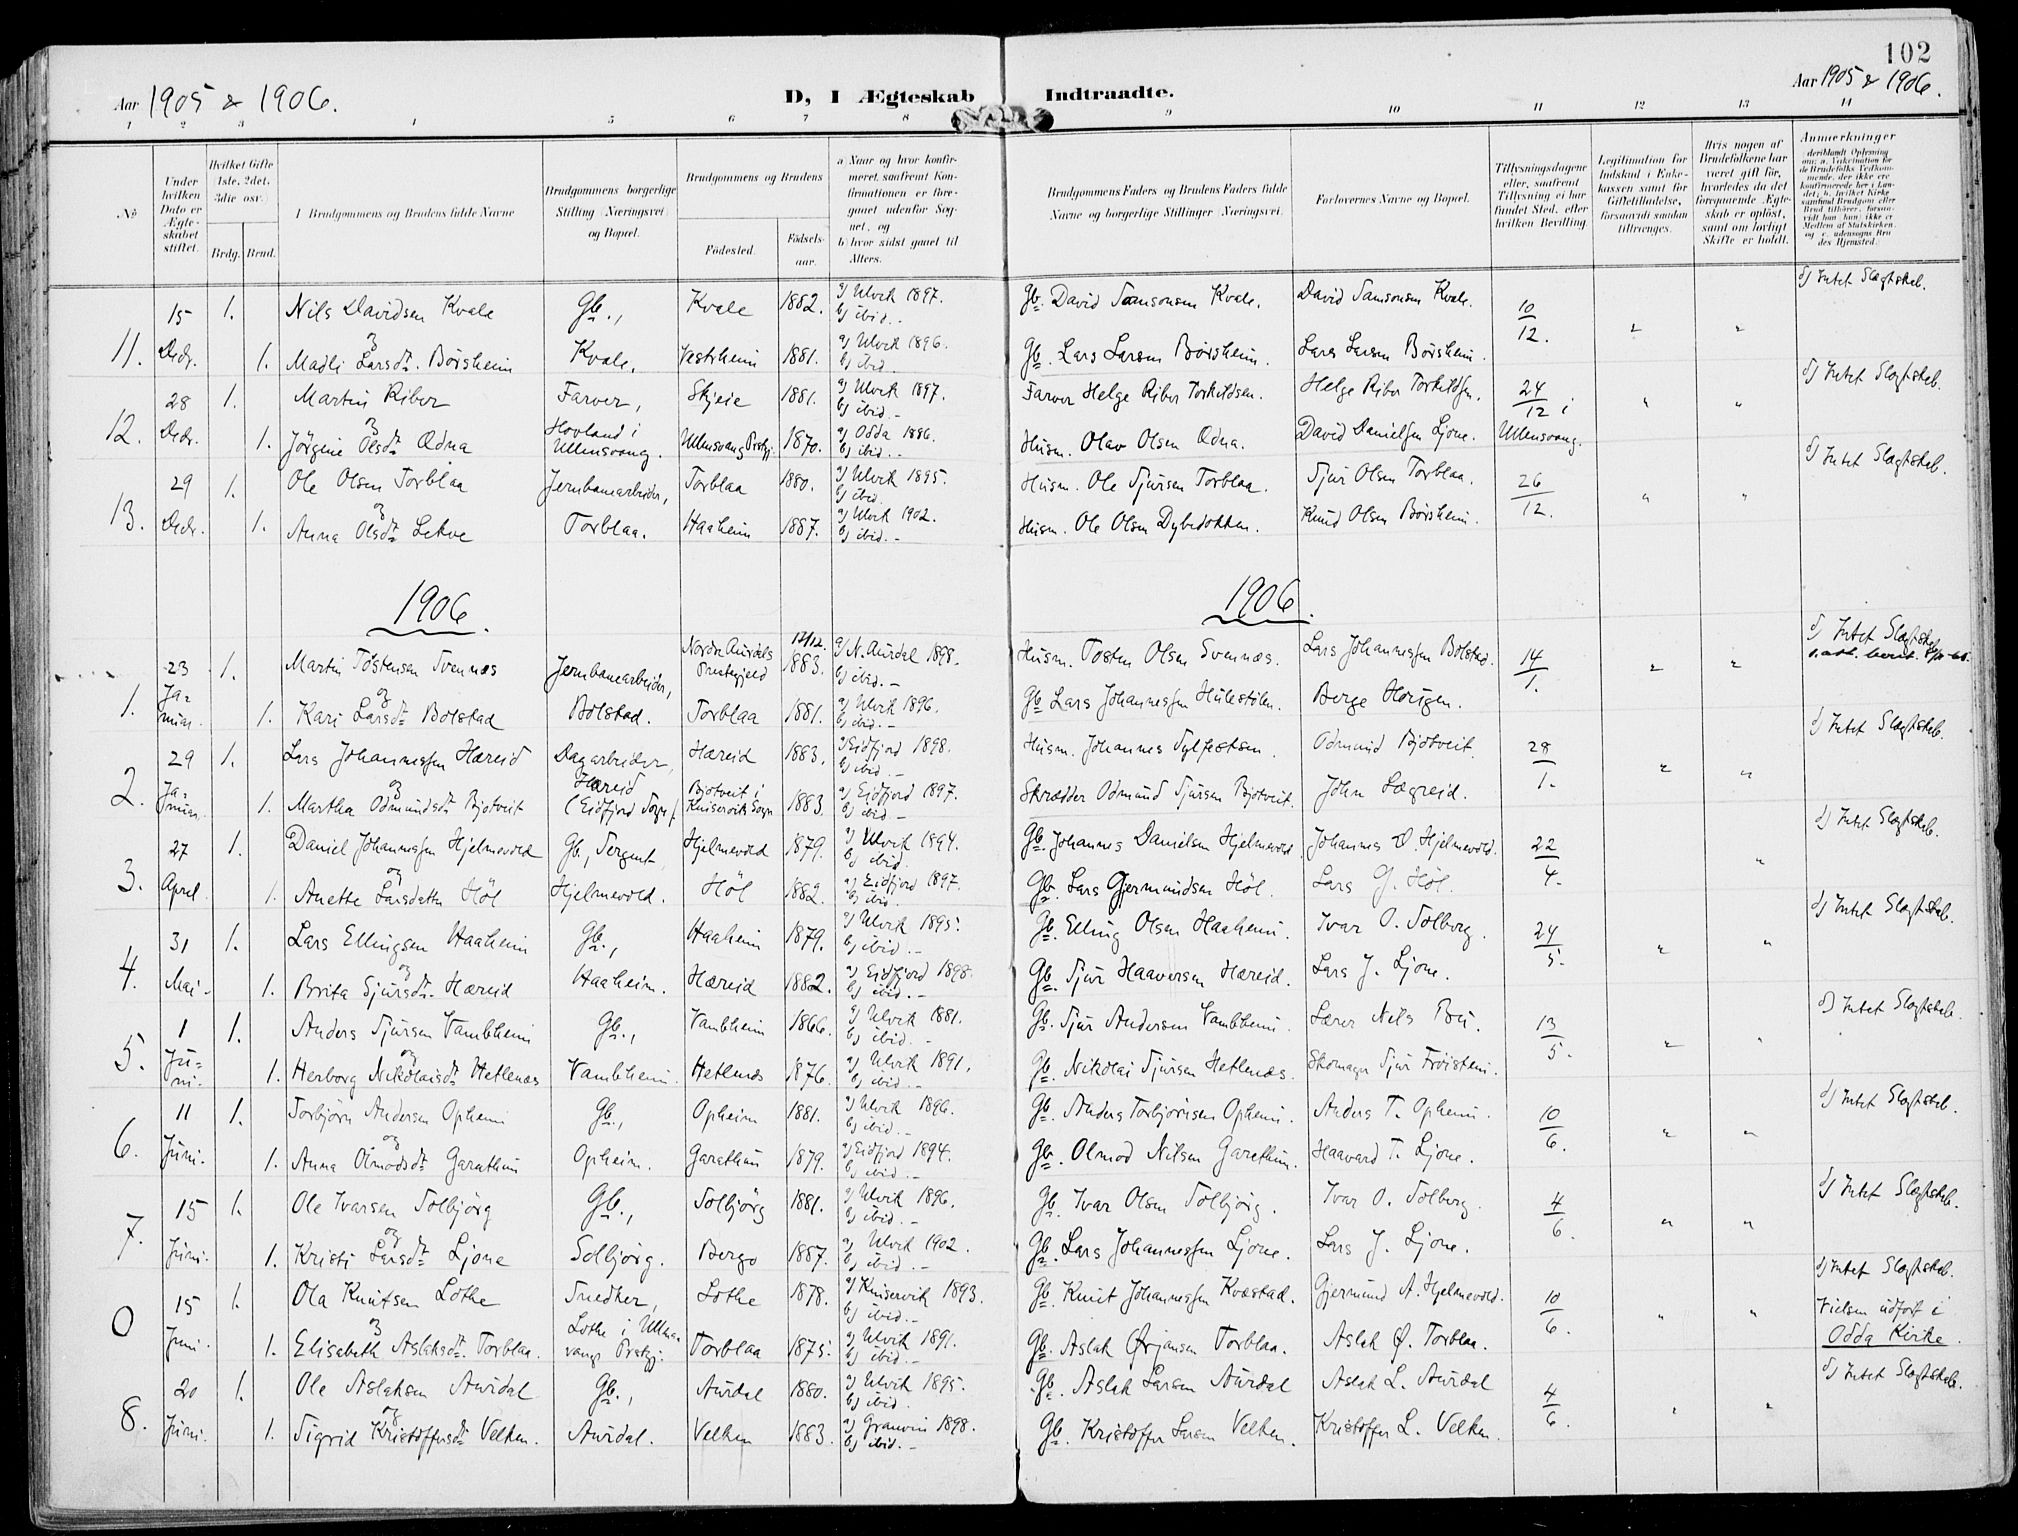 102
Aar 1905 & 1906.
D, I Ægteskab Indtraadte.
Aar 1905 & 1906.
1 2 3 4 5 6 7 8 9 10 11 12 13 14
No
Under hvilken Dato er Ægteskabet stiftet.
Hvilket Gifte 1ste, 2det, 3die osv.
Brdg. Brud.
Brudgommens og Brudens fulde Navne
Brudgommens borgerlige Stilling (Næringsvei) og Bopæl.
Brudgommens og Brudens
Fødested. Fødselsaar.
a Naar og hvor konfirmeret, saafremt Konfirmationen er foregaaet udenfor Sognet, og
b hvor sidst gaaet til Alters.
Brudgommens Faders og Brudens Faders fulde Navne og borgerlige Stillinger (Næringsvei).
Forlovernes Navne og Bopæl.
Tillysningsdagene eller, saafremt Tillysning ei har fundet Sted, efter hvilken Bevilling.
Legitimation for Indskud i Enkekassen samt for Giftetilladelse, forsaavidt saadan tiltrænges.
Hvis nogen af Brudefolkene har været gift før, hvorledes da det foregaaende Ægteskab er opløst, samt om lovligt Skifte er holdt.
Anmerkninger
11. 15 Decbr. 1. Nils Davidsen Kvale Gb., Kvale 1882. a) Ulvik 1897. b) ibid. Gb. David Samsonsen Kvale. David Samsonsen Kvale. 10/12. " " d) Intet Slægtskab.
og
1. Madli Larsdt. Børsheim Kvale. Vestrheim 1881. a) Ulvik 1896. b) ibid. Gb. Lars Larsen Børsheim. Lars Larsen Børsheim.
12. 28 Decbr. 1. Martin Riber Farver, Skjeie 1881. a) Ulvik 1897. b) ibid. Farver Helge Riber Torkildsen. Helge Riber Torkildsen. 24/12 i " " d) Intet Slægtskab.
og
1. Jørgine Olsdt Ædna Hovland i Ullensvang. Ullensvang Prstgj. 1870. a) Odda 1886. b) ibid. Husm. Olav Olsen Ædna. David Danielsen Ljone. Ullensvang.
13. 29 Decbr. 1. Ole Olsen Torblaa Jernbanearbeider, Torblaa 1880. a) Ulvik 1895. b) ibid. Husm. Ole Sjursen Torblaa. Sjur Olsen Torblaa. 26/12. " " d) Intet Slægtskab.
og
1. Anna Olsdt Lekve Torblaa. Haaheim 1887. a) Ulvik 1902. b) ibid. Husm. Ole Olsen Dybedokken. Knud Olsen Børsheim.
1906. 1906.
1. 23 Januar. 1. Martin Tostensen Svennæs Jernbanearbeider, Nordre Aurdals Prestegjeld 12/12. 1883. a) N. Aurdal 1898. b) ibid. Husm. Tosten Olsen Svennæs. Lars Johannessen Bolstad. 14/1. " " d) Intet Slægtskab
og
1. Kari Larsdt Bolstad Bolstad. Torblaa 1881. a) Ulvik 1896. b) ibid. Gb. Lars Johannessen Hulestølen. Berge Horigen.
2. 29 Januar. 1. Lars Johannessen Hæreid Dagarbeider, Hæreid 1883. a) Eidfjord 1898. b) ibid. Husm. Johannes Sylfestsen. Odmund Bjotveit. 28/1. " " d) Intet Slægtskab.
og
1. Martha Odmundsdt Bjotveit Hæreid (Eidfjord Sogn). Bjotveit i Kinservik Sogn 1883. a) Eidfjord 1897. b) ibid. Skrædder Odmund Sjursen Bjotveit. John Lægreid.
3. 27 April. 1. Daniel Johannessen Hjelmevold Gb., Sergent, Hjelmevold 1879. a) Ulvik 1894. b) ibid. Gb. Johannes Danielsen Hjelmevold. Johannes D. Hjelmevold. 22/4. " d) Intet Slægtskab.
og
1. Anette Larsdatter Høl Hjelmevold. Høl 1882. a) Eidfjord 1897. b) ibid. Gb. Lars Gjermundsen Høl. Lars G. Høl.
4. 31 Mai. 1. Lars Ellingsen Haaheim Gb., Haaheim 1879. a) Ulvik 1895. b) ibid. Gb. Elling Olsen Haaheim. Ivar O. Solberg. 24/5. " " d) Intet Slægtskab.
og
1. Brita Sjursdt. Hæreid Haaheim. Hæreid 1882. a) Eidfjord 1898. b) ibid. Gb. Sjur Haaversen Hæreid. Lars J. Ljone.
5. 1 Juni. 1. Anders Sjursen Vambheim Gb., Vambheim 1866. a) Ulvik 1881. b) ibid. Gb. Sjur Andersen Vambheim. Lærer Nils Bu. 13/5. " " d) Intet Slægtskab.
og
1. Herborg Nikolaisdt Hetlenæs Vambheim. Hetlenæs 1876. a) Ulvik 1891. b) ibid. Gb. Nikolai Sjursen Hetlenæs. Skomager Sjur Frøistein.
6. 11 Juni. 1. Torbjørn Andersen Opheim Gb., Opheim 1881. a) Ulvik 1896. b) ibid. Gb. Anders Torbjørnsen Opheim. Anders T. Opheim. 10/6. " " d) Intet Slægtskab.
og
1. Anna Olmodsdt Garathun Opheim. Garathun 1879. a) Eidfjord 1894. b) ibid. Gb. Olmod Nilsen Garathun. Haavard T. Ljone.
7. 15 Juni. 1. Ole Ivarsen Solbjørg Gb., Solbjørg 1881. a) Ulvik 1896. b) ibid. Gb. Ivar Olsen Solbjørg. Ivar O. Solberg. 4/6. " " d) Intet Slægtskab.
og
1. Kristi Larsdt Ljone Solbjørg. Bergo 1887. a) Ulvik 1902. b) ibid. Gb. Lars Johannessen Ljone. Lars J. Ljone.
0 15 Juni. 1. Ola Knutsen Lothe Snedker, Lothe 1878. a) Kinservik 1893. b) ibid. Gb. Knut Johannessen Kvæstad. Gjermund A. Hjelmevold. 10/6. " " d) Intet Slægtskab. Vielsen udført i Odda Kirke.
og
1. Elisabeth Aslaksdt. Torblaa. Lothe i Ullensvang Prstgj. Torblaa 1875. a) Ulvik 1891. b) ibid. Gb. Aslak Ørjansen Torblaa. Aslak Ø. Torblaa.
8. 20 Juni. 1. Ole Aslaksen Aurdal Gb., Aurdal 1880. a) Ulvik 1895. b) ibid. Gb. Aslak Larsen Aurdal Aslak L. Aurdal 4/6. " " d) Intet Slægtskab.
og
1. Sigrid Kristoffersdt Velken. Aurdal. Velken 1883. a) Granvin 1898. b) ibid. Gb. Kristoffer Larsen Velken. Kristoffer L. Velken.